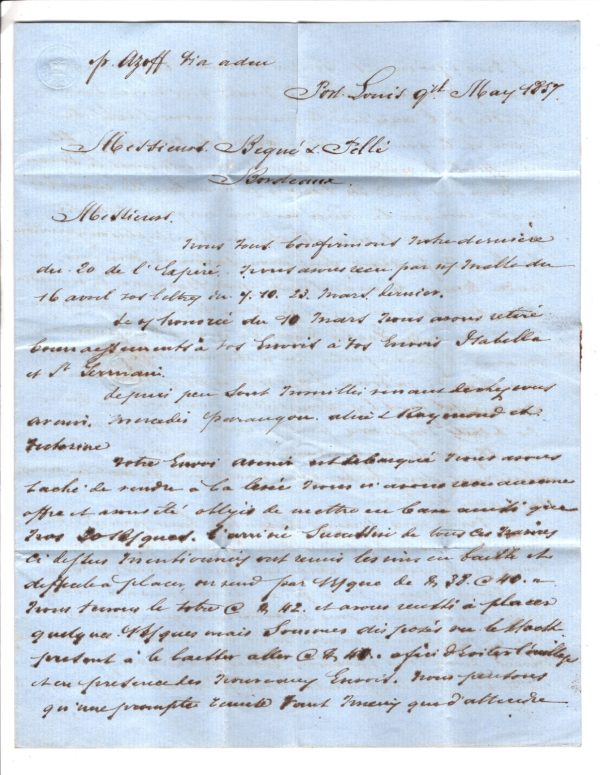 p. Azoff via aden
Port Louis 9th May 1857.
Messieurs Bequé & Fellé
Bordeaux
Messieurs.
Nous vous Confirmons Notre dernière
du 20 de l'Expiré. Nous avons reçu par Malle du
16 avril vos lettres du 7. 10. 23. Mars dernier.
de honorée du 10 Mars Nous avons retiré
à vos Envois à vos Envois Isabella
et St Germain.
depuis peu Sont venant de chez vous
avenir. Mercedes Paraugon Raymond et
Victorine
Votre Envoi avenir est debarqué Nous avons
taché de vendre à la livrée Nous avons aucune
offre et avons été obligés de mettre en ainsi que
vos 20 Bques. L'arrivée Successive de tous ces Navires
Ci dessus Mentionnés ont remis les vins en baisse et
difficile à placer, on vend par Bque de 38 @ 40.
Nous tenons le votre @ 42. et avons reussi à placer
quelques Bques mais Sommes disposés vu le Stock
présent à le laisser aller @ 40.. afin d'Eviter Coulage
et en presence des Nouveaux Envois. Nous pensons
qu'une prompte vaut mieux que d'attendre